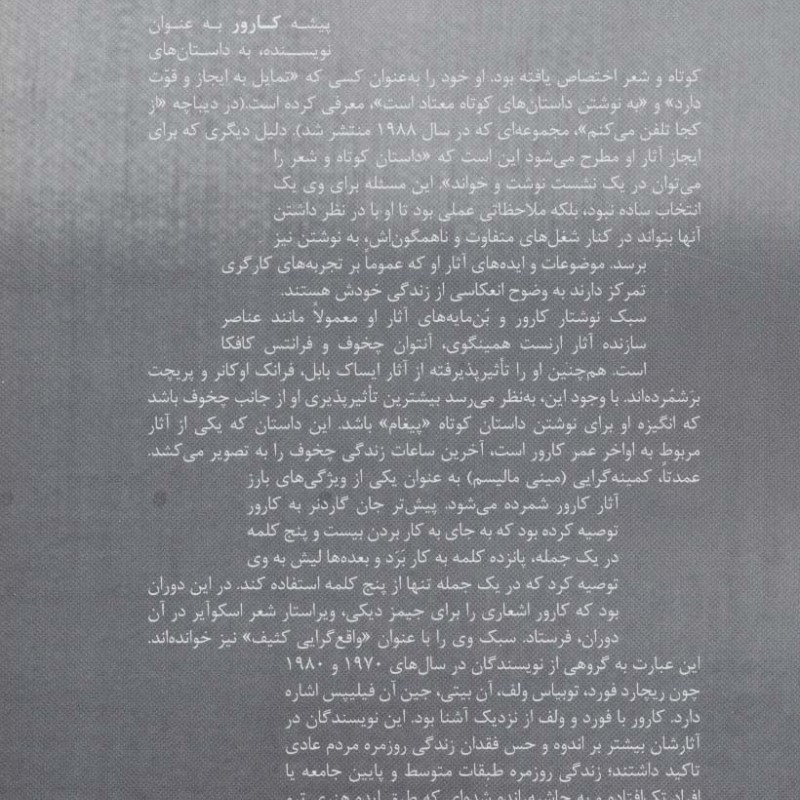 پیشه کارور به عنوان
نویسنده، به داستان‌های
کوتاه و شعر اختصاص یافته بود. او خود را به‌عنوان کسی که «تمایل به ایجاز و قوّت
دارد» و «به نوشتن داستان‌های کوتاه معتاد است»، معرفی کرده است.(در دیباچه «از
کجا تلفن می‌کنم»، مجموعه‌ای که در سال ۱۹۸۸ منتشر شد). دلیل دیگری که برای
ایجاز آثار او مطرح می‌شود این است که «داستان کوتاه و شعر را
می‌توان در یک نشست نوشت و خواند». این مسئله برای وی یک
انتخاب ساده نبود، بلکه ملاحظاتی عملی بود تا او با در نظر داشتن
آنها بتواند در کنار شغل‌های متفاوت و ناهمگون‌اش، به نوشتن نیز
برسد. موضوعات و ایده‌های آثار او که عموماً بر تجربه‌های کارگری
تمرکز دارند به وضوح انعکاسی از زندگی خودش هستند.
سبک نوشتار کارور و بُن‌مایه‌های آثار او معمولاً مانند عناصر
سازنده آثار ارنست همینگوی، آنتوان چخوف و فرانتس کافکا
است. هم‌چنین او را تأثیرپذیرفته از آثار ایساک بابل، فرانک اوکانر و پریچت
برشمُرده‌اند. با وجود این، به‌نظر می‌رسد بیشترین تأثیرپذیری او از جانب چخوف باشد
که انگیزه او برای نوشتن داستان کوتاه «پیغام» باشد. این داستان که یکی از آثار
مربوط به اواخر عمر کارور است، آخرین ساعات زندگی چخوف را به تصویر می‌کشد.
عمدتاً، کمینه‌گرایی (مینی مالیسم) به عنوان یکی از ویژگی‌های بارز
آثار کارور شمرده می‌شود. پیش‌تر جان گاردنر به کارور
توصیه کرده بود که به جای به کار بردن بیست و پنج کلمه
در یک جمله، پانزده کلمه به کار بَرَد و بعدها لیش به وی
توصیه کرد که در یک جمله تنها از پنج کلمه استفاده کند. در این دوران
بود که کارور اشعاری را برای جیمز دیکی، ویراستار شعر اسکوآیر در آن
دوران، فرستاد. سبک وی را با عنوان «واقع‌گرایی کثیف» نیز خوانده‌اند.
این عبارت به گروهی از نویسندگان در سال‌های ۱۹۷۰ و ۱۹۸۰
چون ریچارد فورد، توبیاس ولف، آن بیتی، جین آن فیلیپس اشاره
دارد. کارور با فورد و ولف از نزدیک آشنا بود. این نویسندگان در
آثارشان بیشتر بر اندوه و حس فقدان زندگی روزمره مردم عادی
تاکید داشتند؛ زندگی روزمره طبقات متوسط و پایین جامعه یا
افراد تک‌افتاده و به حاشیه‌رانده شده‌ای که طبق ایده هنری